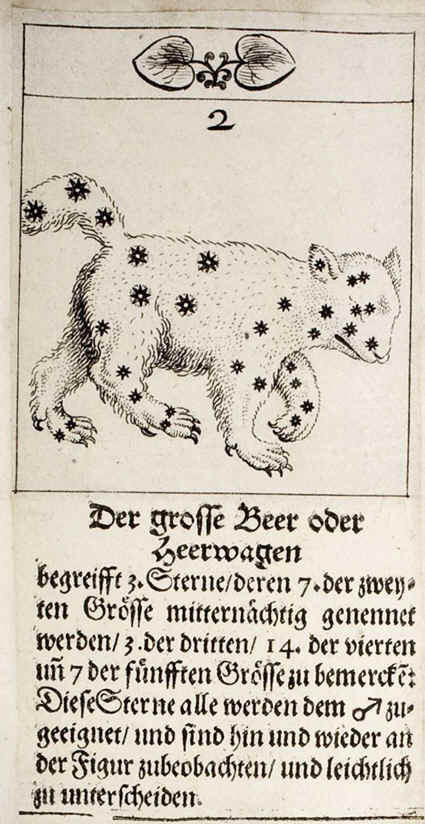 2
Der grosse Beer oder
Heerwagen
begreifft 3. Sterne/deren 7. der zwey-
ten Grösse mitternächtig genennet
werden/ 3. der dritten/ 14. der vierten
uñ 7 der fünfften Grösse zu bemerckẽ:
Diese Sterne alle werden dem ♂ zu-
geeignet/ und sind hin und wieder an
der Figur zubeobachten/ und leichtlich
zu unterscheiden.